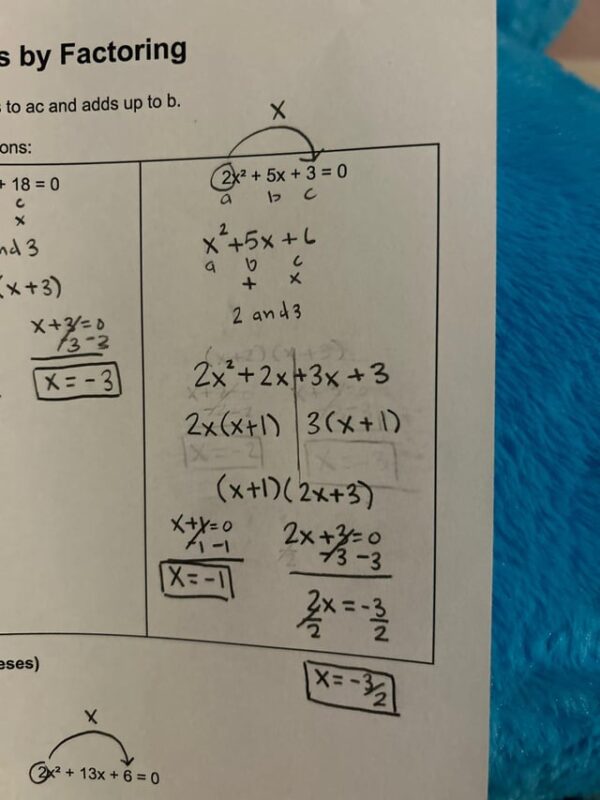 s by Factoring
s to ac and adds up to b.
ons:
+ 18 = 0
c
x
nd 3
(x+3)
x+3=0
-3 -3
x = -3
x
2x² + 5x + 3 = 0
a b c
x²+5x+6
a b c
+ x
2 and 3
2x²+2x+3x+3
2x(x+1) 3(x+1)
(x+1)(2x+3)
x+1=0
-1 -1
x=-1
2x+3=0
-3 -3
2x = -3
2 2
x=-3/2
eses)
x
2x² + 13x + 6 = 0